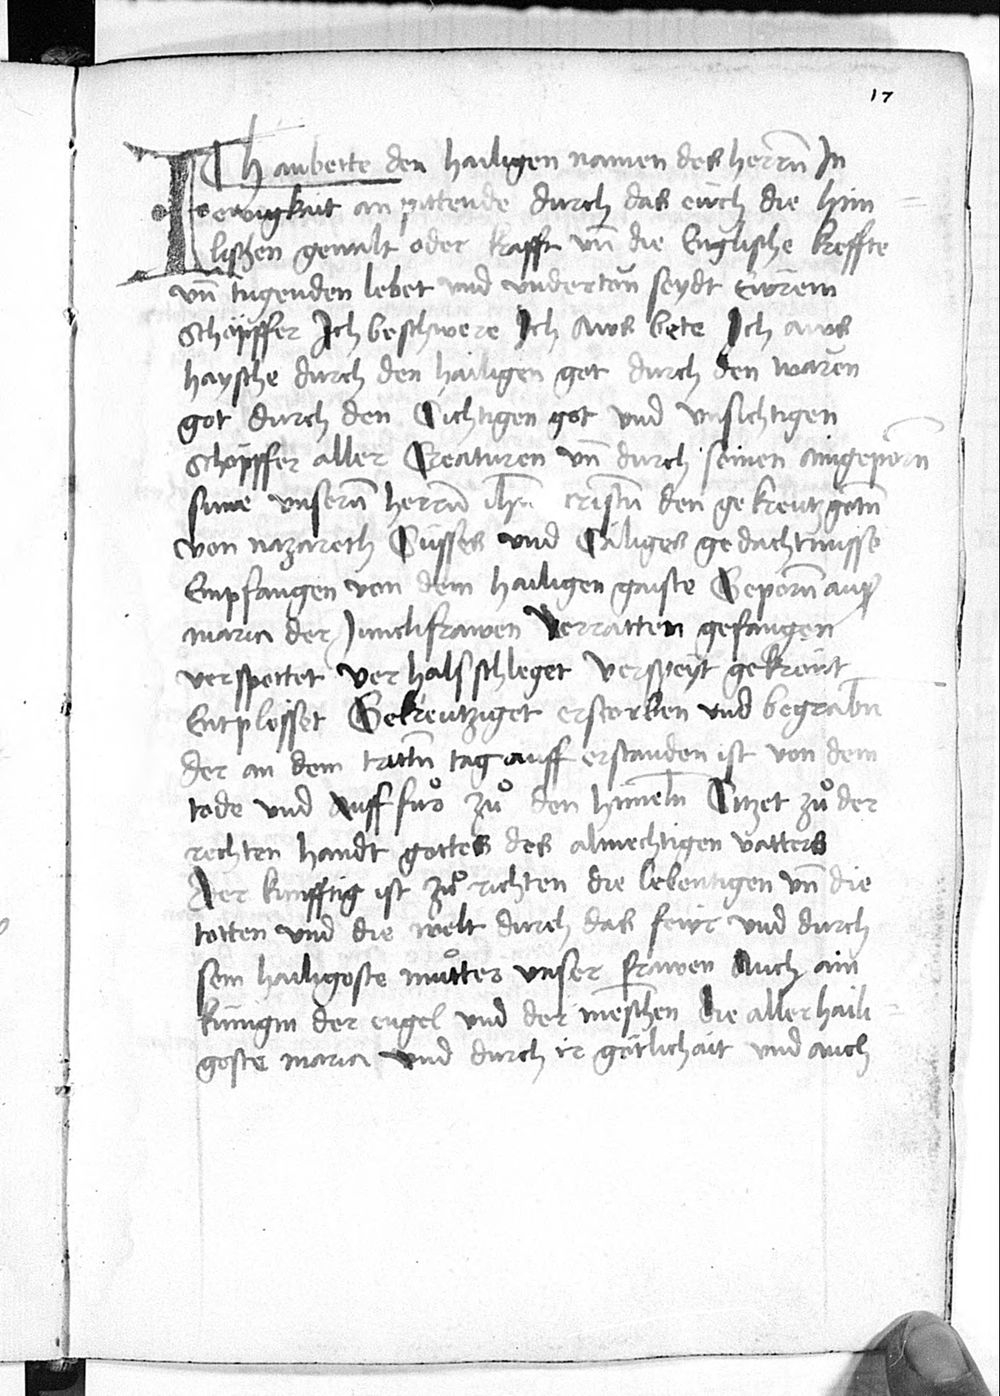 17
Ich anbette den hailigen namen des herrn̄ In
ewigkait an pittende durch das eüch die him =
lischen gewalt oder krafft vn̄ die Englische kreffte
vn̄ tugenden lebet vnd vndertan̄ seydt ewrem
schöpffer Ich beschwere Ich aws bete Ich aws
haysche durch den hailigen got durch den waren
got durch den Sichtigen got vnd vnsichtigen
schöpffer aller Creaturen vn̄ durch seinen aingeporn̄
sune vnsern̄ herrn̄ ihm̄ cristū den gekreutzgotn̄
von nazareth Süsses vnd Säliges gedachtnusse
Empfangen von dem hailigen gaiste Geporn̄ auß
maria der Junckfrawen Verratten gefangen
verspottet verhalsschleget Verspeyt gekrönt
Entplösset Gekreutziget erstorben vnd begrabn̄
der an dem trittn̄ tag auff erstanden ist von dem
tode vnd Auff fuͦr zuͦ den himeln̄ Sitzet zuͦ der
rechten handt gottes des almechtigen vatters
Der kunfftig ist zuͦ richten die lebentigen vn̄ die
totten vnd die welt durch das feür vnd durch
sein hailigoste muͦtter vnser frawen Auch ain
künigin der engel vnd der menschen die aller haili =
goste maria vnd durch ir götlichait vnd auch